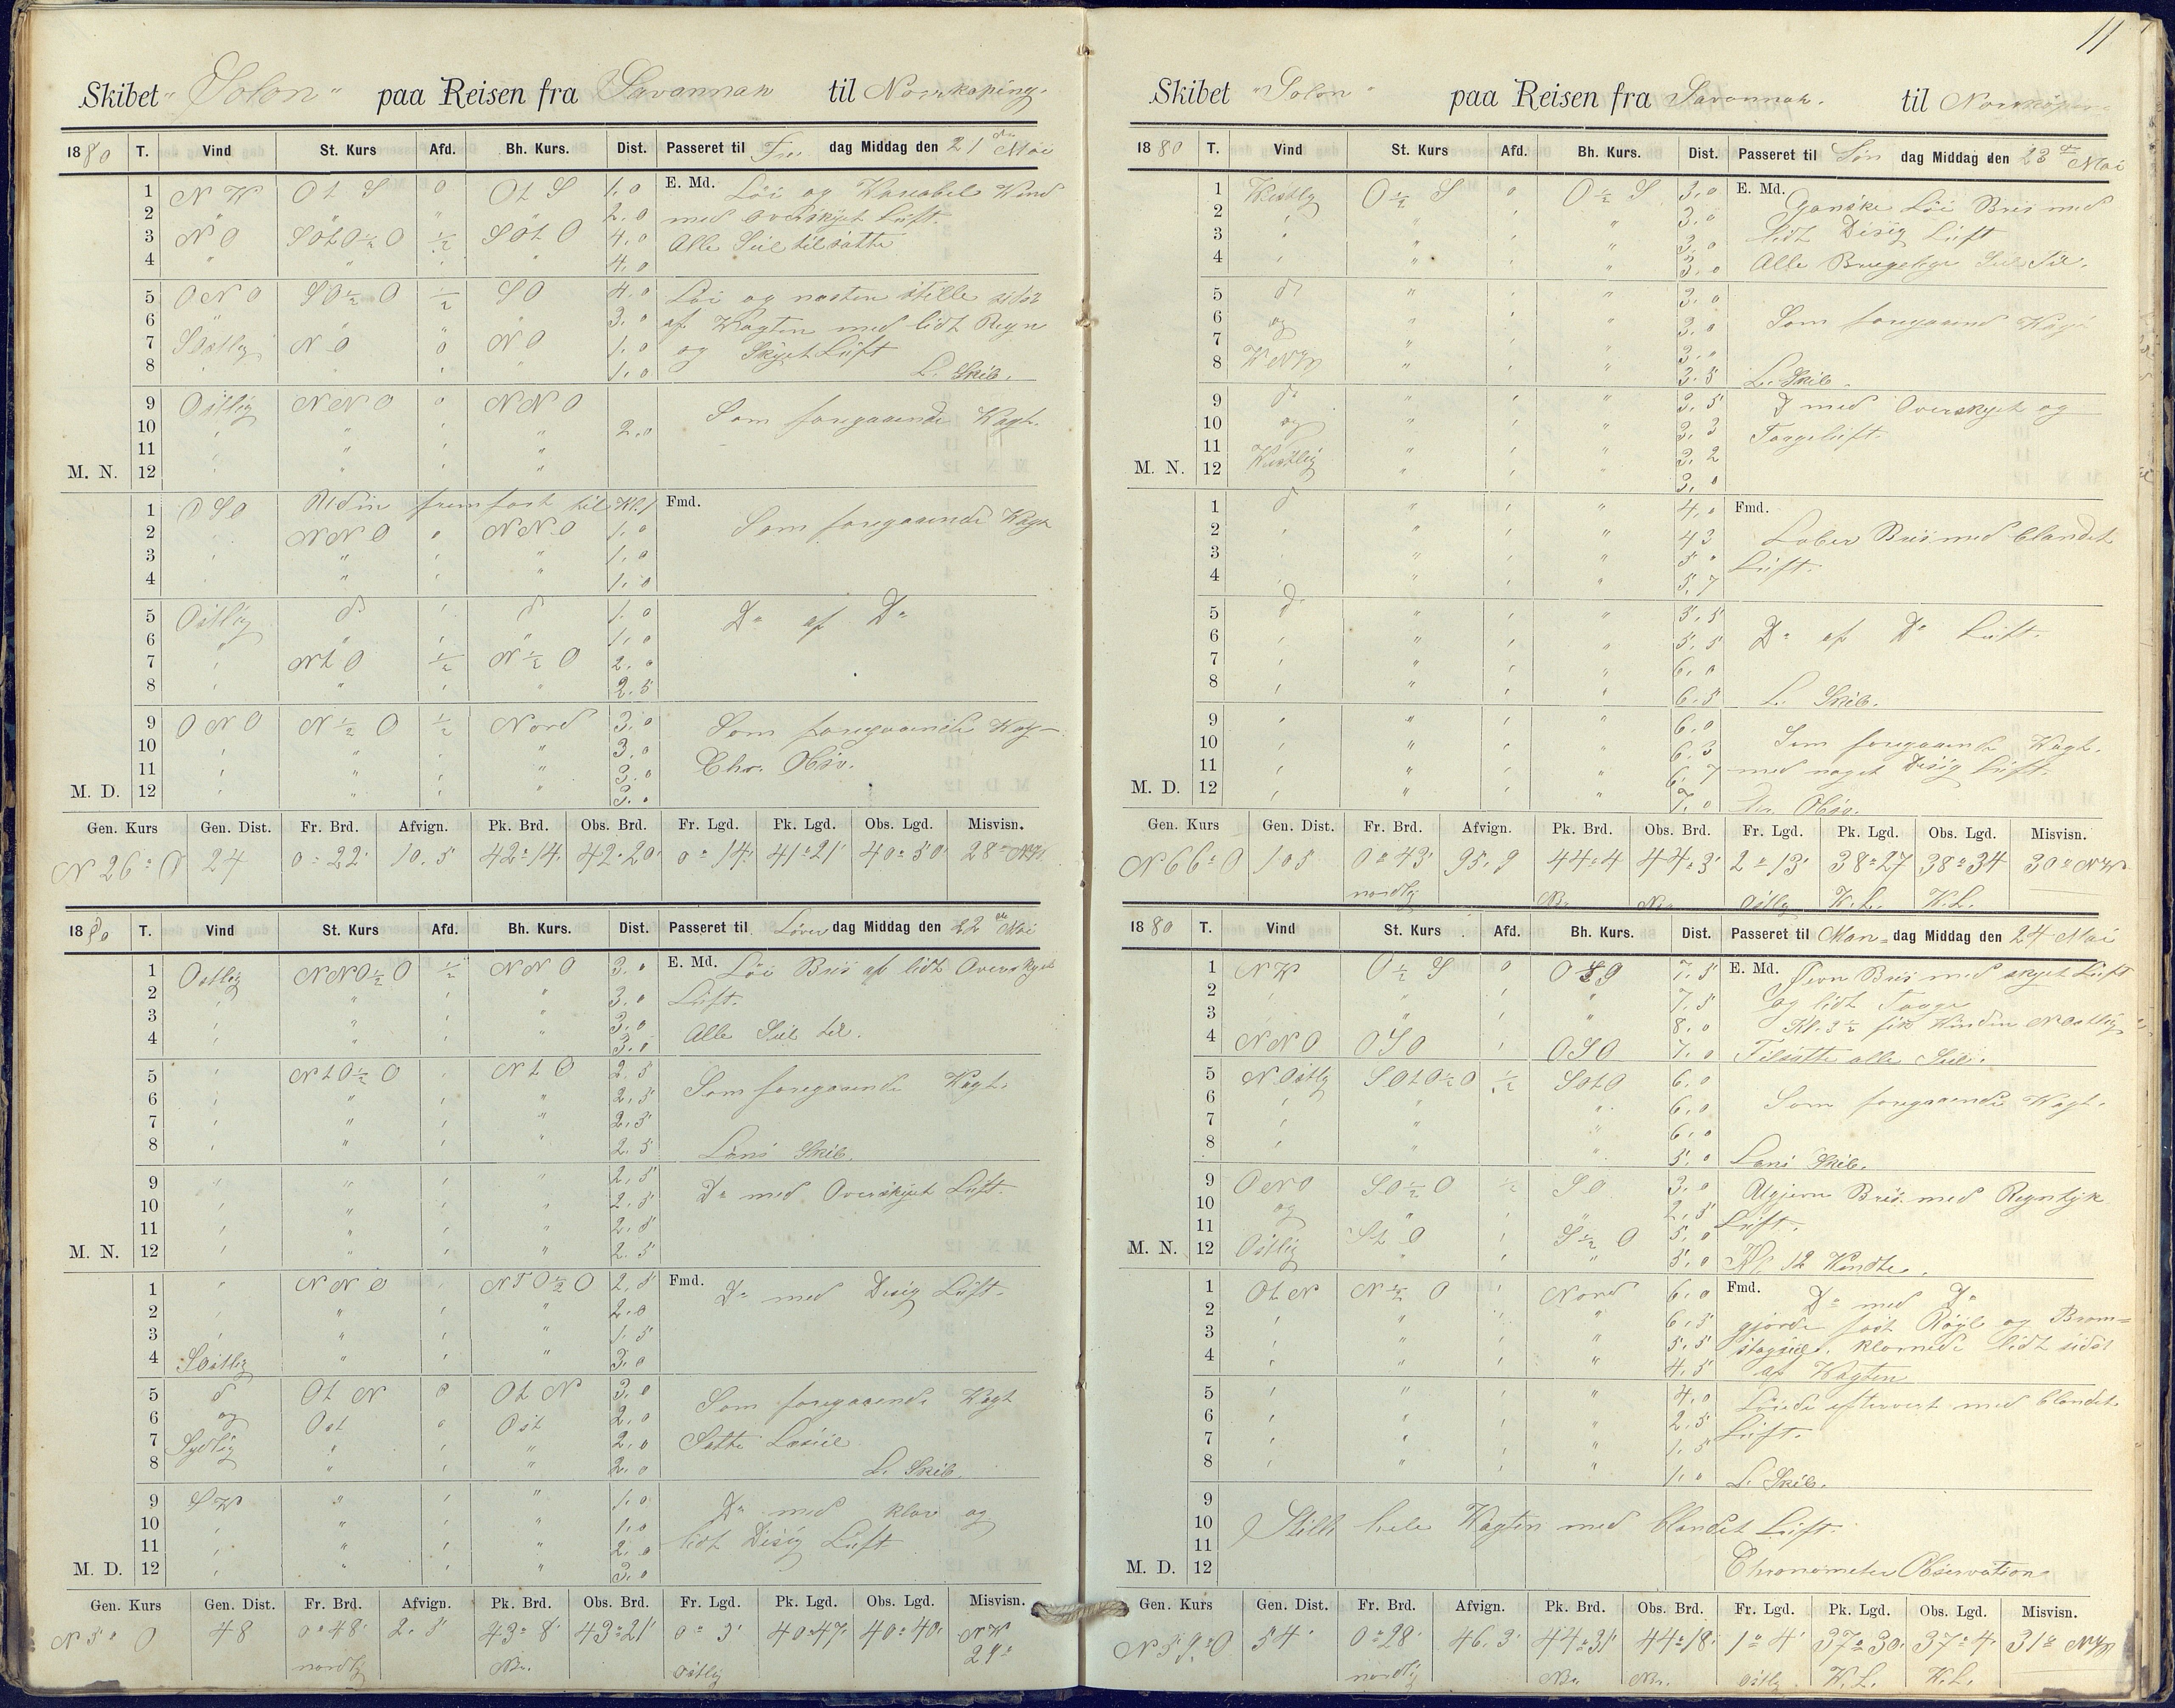 11
Skibet "Solon" paa Reisen fra Savannah til Norrkøping.
1880 T. Vind St. Kurs Afd. Bh. Kurs. Dist. Passeret til Fre dag Middag den 21 de Mai
1 N W Ot S 0 Ot S 1.0 E. Md. Löi og Variabel Wind
2 " " " 2.0 med overskyet Luft.
3 N O SOtO½O ½ SOt O 4.0 Alle Seil tilsatte
4 " " " " 4.0
5 O N O SO½O ½ SO 4.0 Löi og næsten stille sidst
6 " " " " 3.0 af Wagten med lidt Regn
7 SOstlig N O 0 N O 1.0 og Skyet Luft
8 " " " 1.0 L. Skib.
9 Ostlig N N O 0 N N O
10 " " " " 2.0 Som foregaaende Wagt.
11 " " " "
M. N. 12 " " " "
1 O S O Kl. 1 Fmd.
2 " N N O 0 N N O 1.0 Som foregaaende Wagt
3 " " " " 1.0
4 " " " " 1.0
5 Ostlig do " do 1.0 Do af Do
6 " " " " 1.0
7 " Nt O ½ N ½ O 2.0
8 " " " " 2.5
9 O N O N ½ O ½ Nord 3.0 Som foregaaende Wag
10 " " " " 3.0 Chr. Obsv.
11 " " " " 3.0
M. D. 12 " " " " 3.0
Gen. Kurs Gen. Dist. Fr. Brd. Afvign. Pk. Brd. Obs. Brd. Fr. Lgd. Pk. Lgd. Obs. Lgd. Misvisn.
N 26° O 24 0° 22' 10.5 42° 14' 42° 20' 0° 14' 41° 21' 40° 50' 28° NW
1880 T. Vind St. Kurs Afd. Bh. Kurs. Dist. Passeret til Löver dag Middag den 22 de Mai
1 Ostlig NNO½O ½ N N O 3.0 E. Md. Löi Bris af lidt Overskyet
2 " " " " 3.0 Luft.
3 " " " " 3.0
4 " " " " 3.0 Alle Seil til.
5 " NtO½O " Nt O 2.5
6 " " " " 2.5 Som foregaaende Wagt.
7 " " " " 2.5
8 " " " " 2.5 Läns Skib.
9 " " " 2.5
10 " " " " 2.5 Do med Overskyet Luft.
11 " " " " 2.5
M. N. 12 " " " " 2.5
1 " N N O " NTO½O 2.5 Fmd. Do med Disig Luft.
2 " " " " 2.0
3 " " " " 1.5
4 SOstlig " " " 3.0
5 do Ot N 0 Ot N 3.0 Som foregaaende Wagt
6 og Ost 0 Ost 2.0
7 Sydlig " " " 2.0 Satte Læseil
8 " " " 2.0 L. Skib.
9 S W " " " 1.0 Do med klar og
10 " " " " 1.0 lidt Disig Luft
11 " " " " 2.0
M. D. 12 " " " " 3.0
Gen. Kurs Gen. Dist. Fr. Brd. Afvign. Pk. Brd. Obs. Brd. Fr. Lgd. Pk. Lgd. Obs. Lgd. Misvisn.
N 5° O 48 0° 48' 2.5 43° 8' 43° 21' 0° 3' 40° 47' 40° 40' NW
nordlig Nr. Ostlig 29°
Skibet "Solon" paa Reisen fra Savannah. til Norrköping
1880 T. Vind St. Kurs Afd. Bh. Kurs. Dist. Passeret til Søn dag Middag den 23 de Mai
1 Westlig O ½ S 0 O ½ S 3.0 E. Md. Ganske Löi Bris med
2 " " " " 3.0 lidt Disig Luft
3 " " " " 3.0
4 " " " " 3.0 Alle Brugelige Seil Til.
5 do " " " 3.0
6 og " " " 3.0 Som foregaaend Wagt
7 " " " 3.0
8 W N W " " " 3.5 L. Skib.
9 do " " " 3.5 D med Overskyet og
10 og " " " 3.3 Taageluft.
11 Westlig " " " 3.2
M. N. 12 " " " 3.0
1 do " " " 4.0 Fmd.
2 " " " " 4.3 Laber Bris med blandet
3 " " " " 5.0 Luft.
4 " " " " 5.7
5 do " " " 5.5
6 " " " " 5.5 Do af Do Luft.
7 " " " " 6.0
8 " " " " 6.5 L. Skib.
9 " " " " 6.0
10 " " " " 6.3 Som foregaaende Wagt.
11 " " " " 6.7 med noget Disig Luft.
M. D. 12 " " " " 7.0 Chr. Obsv.
Gen. Kurs Gen. Dist. Fr. Brd. Afvign. Pk. Brd. Obs. Brd. Fr. Lgd. Pk. Lgd. Obs. Lgd. Misvisn.
N 66° O 105 0° 43' 95.9 44° 4 44° 3' 2° 13' 38° 27 38° 34 30° NW
nordlig Nr. Nr. Ostlig W.L. W.L.
1880 T. Vind St. Kurs Afd. Bh. Kurs. Dist. Passeret til Man- dag Middag den 24 Mai
1 N W O ½ S 0 7.5 E. Md. Jevn Bris med skyet Luft
2 " " " " 7.5 og lidt Taage
3 " " " " 8.0 Kl. 3½ fik Vinden NOostlig
4 N N O O S O " O S O 7.0 Tilsatte alle Seil.
5 N Ostlig SOtO½O ½ SOtO 6.0
6 " " " " 6.0 Som foregaaende Wagt.
7 " " " " 6.0
8 " " " 5.0 Lans Skib.
9 O N O SO½O ½ SO 3.0 Ujevn Bris med Regntyk
10 og " " " 2.5 Luft.
11 Ostlig St O " S ½ O 5.0
M. N. 12 " " " 5.0 Kl. 12 Vendte.
1 Ot N N ½ O " Nord 6.0 Fmd. Do med Do
2 " " " " 6.5 gjorde fast Røgl og Bram-
3 " " " " 5.5 stagseil. klarnede lidt sidst
4 " " " " 4.5 af Wagten
5 " " " " 4.0 Löiede eftervert med blandet
6 " " " " 2.5 Luft.
7 " " " " 1.5
8 " " " " 1.0 L. Skib.
9
10 Stille hele Wagten med blandet Luft.
11
M. D. 12 Chronometer Observation
Gen. Kurs Gen. Dist. Fr. Brd. Afvign. Pk. Brd. Obs. Brd. Fr. Lgd. Pk. Lgd. Obs. Lgd. Misvisn.
N 59° O 54' 0° 28' 46.3' 44° 31' 44° 18' 1° 4' 37° 30' 37° 4' 31° NW
nordlig Nr. Nr. Ostlig W.L. W.L.